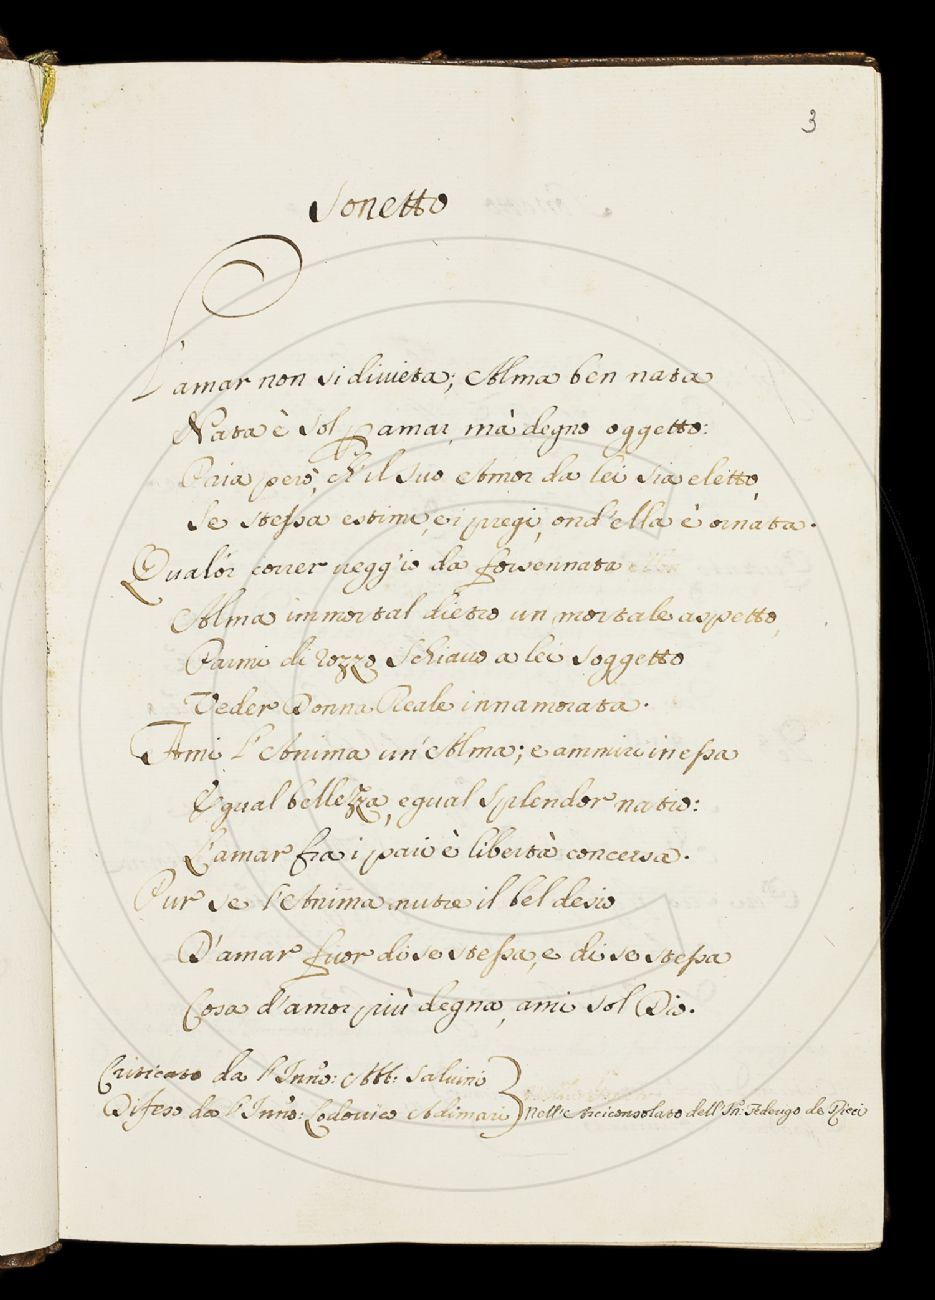 3
Sonetto
L'amar non si diuieta; Alma ben nata
Nata è sol p amar, mà degno oggetto:
Pria però, ch'il suo Amor da lei sia eletto,
Se stessa estimi, e i pregi, ond'ella è ornata.
Qualor correr uegg'io da forsennata
Alma immortal dietro un mortale aspetto,
Parmi di rozzo Schiauo a lei soggetto
Veder Donna Reale innamorata.
Ami l'Anima un'Alma; e ammiri in essa
Egual bellezza, egual splendor natio:
L'amar fra i pari è libertà concessa.
Pur se l'Anima nutre il bel desio
D'amar fuor di se stessa, e di se stessa
Cosa d'amor più degna, ami sol Dio.
Criticato da l'Inno: Abb: Saluini
Difeso da l'Inno: Lodouico Adimari } Nell'Arciconsolato dell' Federigo de Ricci